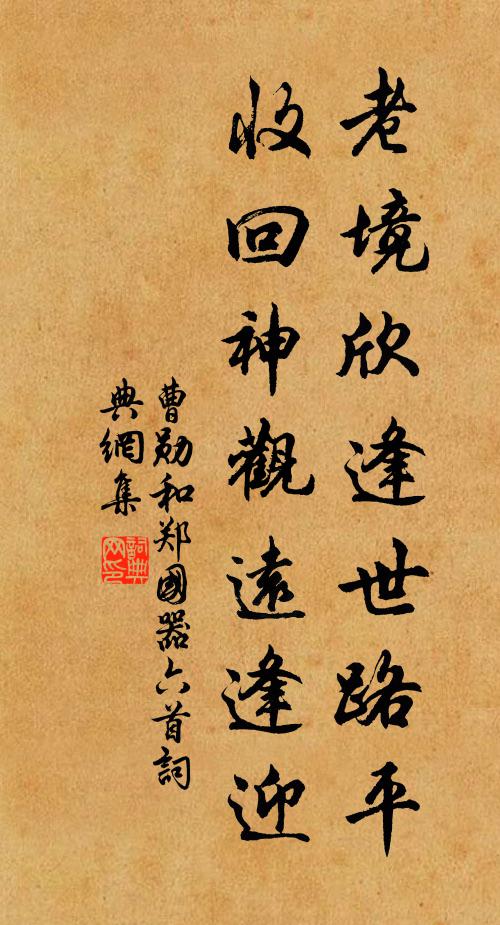 老境欣逢世路平
收回神觀遠逢迎
曹勛和郑國器六首詞
典網集
詞典网印